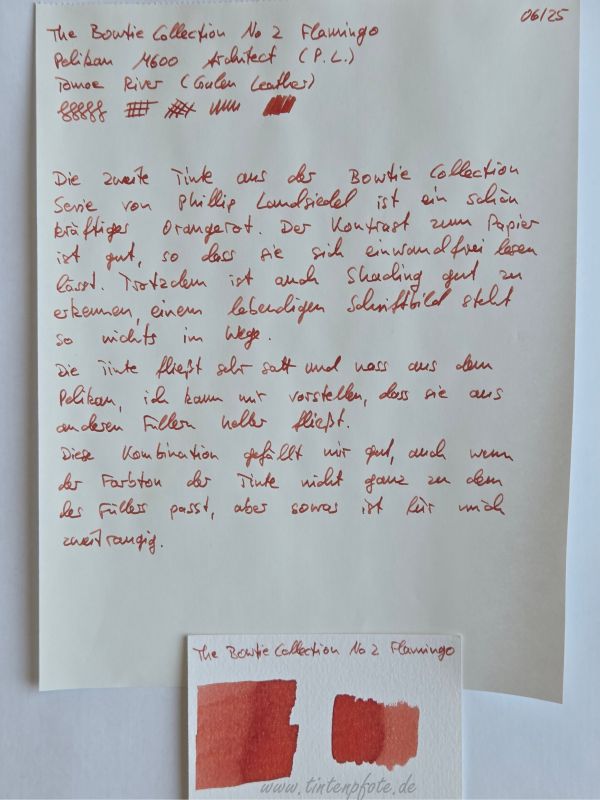 06/25
The Bowtie Collection No 2 Flamingo
Pelikan M600 Architect (P.L.)
Tomoe River (Galen Leather)
Die zweite Tinte aus der Bowtie Collection
Serie von Phillip Landsiedel ist ein schön
kräftiges Orangerot. Der Kontrast zum Papier
ist gut, so dass sie sich einwandfrei lesen
lässt. Trotzdem ist auch Shading gut zu
erkennen, einem lebendigen Schriftbild steht
so nichts im Wege.
Die Tinte fließt sehr satt und nass aus dem
Pelikan, ich kann mir vorstellen, dass sie aus
anderen Füllern heller fließt.
Diese Kombination gefällt mir gut, auch wenn
der Farbton der Tinte nicht ganz zu dem
des Füllers passt, aber sowas ist für mich
zweitrangig.
The Bowtie Collection No 2 Flamingo
www.tintenpfote.de